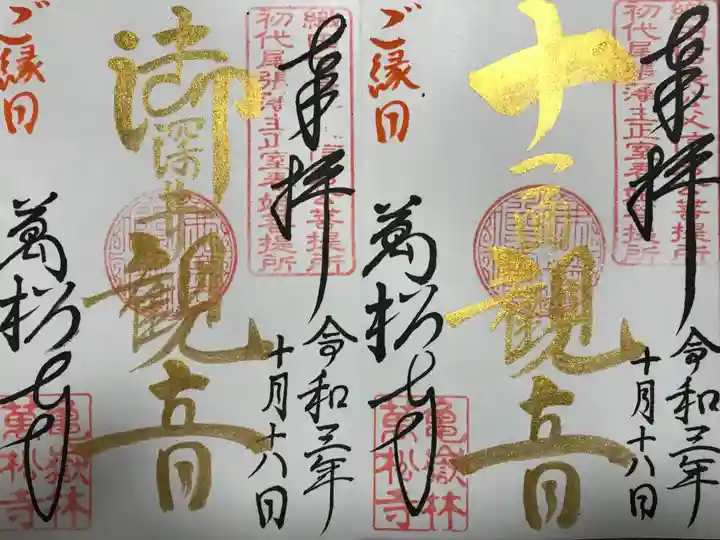 奉拝
令和三年
十月十八日
初代尾張藩主正室春姫菩提所
十一面観音
ご縁日
萬松寺
亀嶽林
萬松寺
奉拝
令和三年
十月十八日
初代尾張藩主正室春姫菩提所
御深井観音
ご縁日
萬松寺
亀嶽林
萬松寺